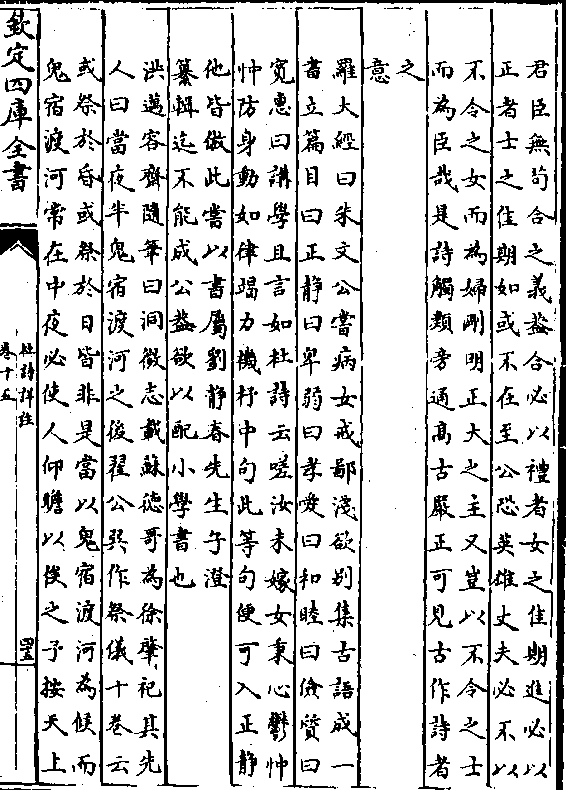 君臣無茍合之義蓋合必以禮者女之佳期進必以
正者士之佳期如或不在至公恐英雄丈夫必不以
不令之女而為婦剛明正大之主又豈以不令之士
而為臣哉是詩觸類旁通髙古嚴正可見古作詩者
之
意
羅大經曰朱文公嘗病女戒鄙淺欲别集古語成一
書立篇目曰正静曰卑弱曰孝愛曰和睦曰儉質曰
寛惠曰講學且言如杜詩云嗟汝未嫁女秉心鬱忡
忡防身動如律竭力機杼中句此等句便可入正静
他皆倣此嘗以書屬劉静春先生子澄
纂輯迄不能成公蓋欲以配小學書也
洪邁容齋隨筆曰洞微志載蘇徳哥為徐肇祀其先
人曰當夜半鬼宿渡河之後翟公巽作祭儀十卷云
或祭於昏或祭於旦皆非是當以鬼宿渡河為候而
鬼宿渡河常在中夜必使人仰瞻以俟之予按天上
欽定四庫全書
杜詩詳註
卷十五